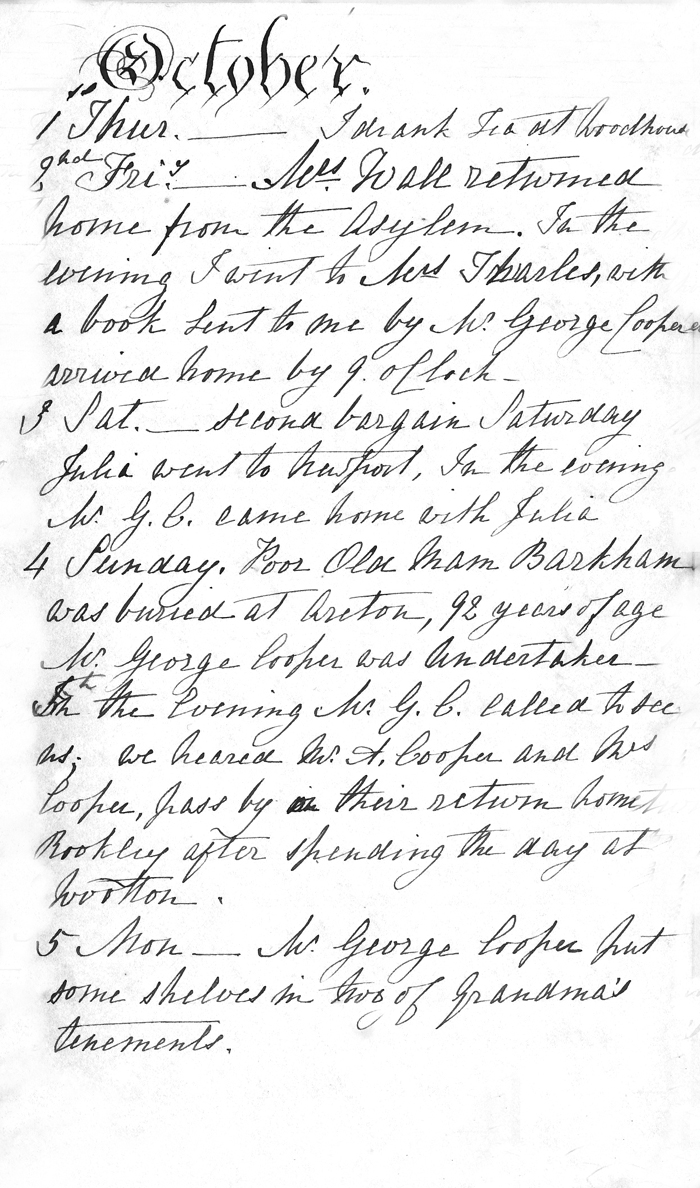 October.
1st Thur. — I drank Tea at Woodhouse
2nd Fri.y — Mrs Wall returned
home from the Asylem. In the
evening I went to Mrs Tharles, with
a book sent to me by Mr. George Cooper
arrived home by 9. oClock -
3 Sat. — second bargain Saturday
Julia went to Newport, In the evening
Mr. G. C. came home with Julia
4 Sunday. Poor Old Mam Barkham
was buried at Areton, 92 years of age
Mr. George Cooper was Undertaker —
In the Evening Mr. G. C. called to see
us; we heared Mr. A. Cooper and Mrs
Cooper, pass by in their return home
Rookley after spending the day at
Wootton.
5 Mon — Mr. George Cooper put
some shelves in two of Grandma's
tenements.